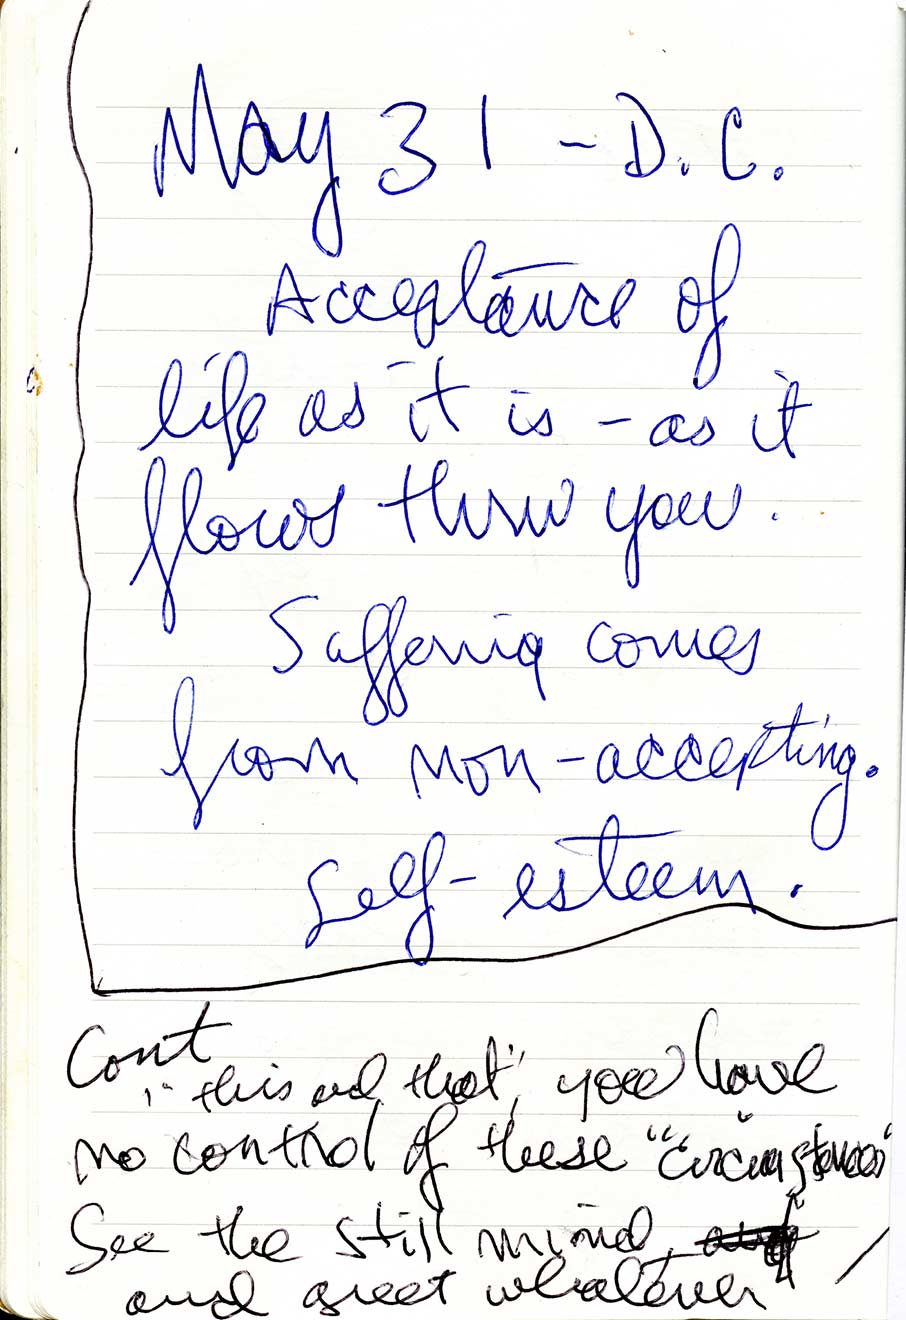 May 31 - D.C.
Acceptance of
life as it is - as it
flows thru you.
Suffering comes
from non-accepting.
Self-esteem.
Cont
"this and that", you have
no control of these "circumstances"
See the still mind,
and greet whatever